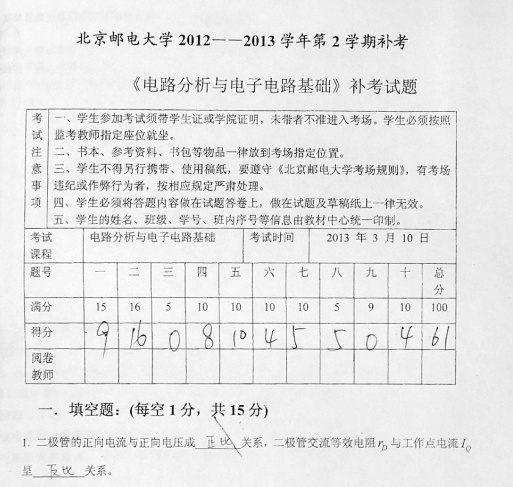 北京邮电大学 2012——2013 学年第 2 学期补考
《电路分析与电子电路基础》补考试题
考试注意事项
一、学生参加考试须带学生证或学院证明，未带者不准进入考场。学生必须按照
监考教师指定座位就坐。
二、书本、参考资料、书包等物品一律放到考场指定位置。
三、学生不得另行携带、使用稿纸，要遵守《北京邮电大学考场规则》，有考场
违纪或作弊行为者，按相应规定严肃处理。
四、学生必须将答题内容做在试题答卷上，做在试题及草稿纸上一律无效。
五、学生的姓名、班级、学号、班内序号等信息由教材中心统一印制。
考试课程 电路分析与电子电路基础 考试时间 2013 年 3 月 10 日
题号 一 二 三 四 五 六 七 八 九 十 总分
满分 15 16 5 10 10 10 10 5 9 10 100
得分 9 16 0 8 10 4 5 5 0 4 61
阅卷教师
一．填空题：(每空 1 分，共 15 分)
1. 二极管的正向电流与正向电压成 正比 关系，二极管交流等效电阻 r_D 与工作点电流 I_Q
呈 反比 关系。